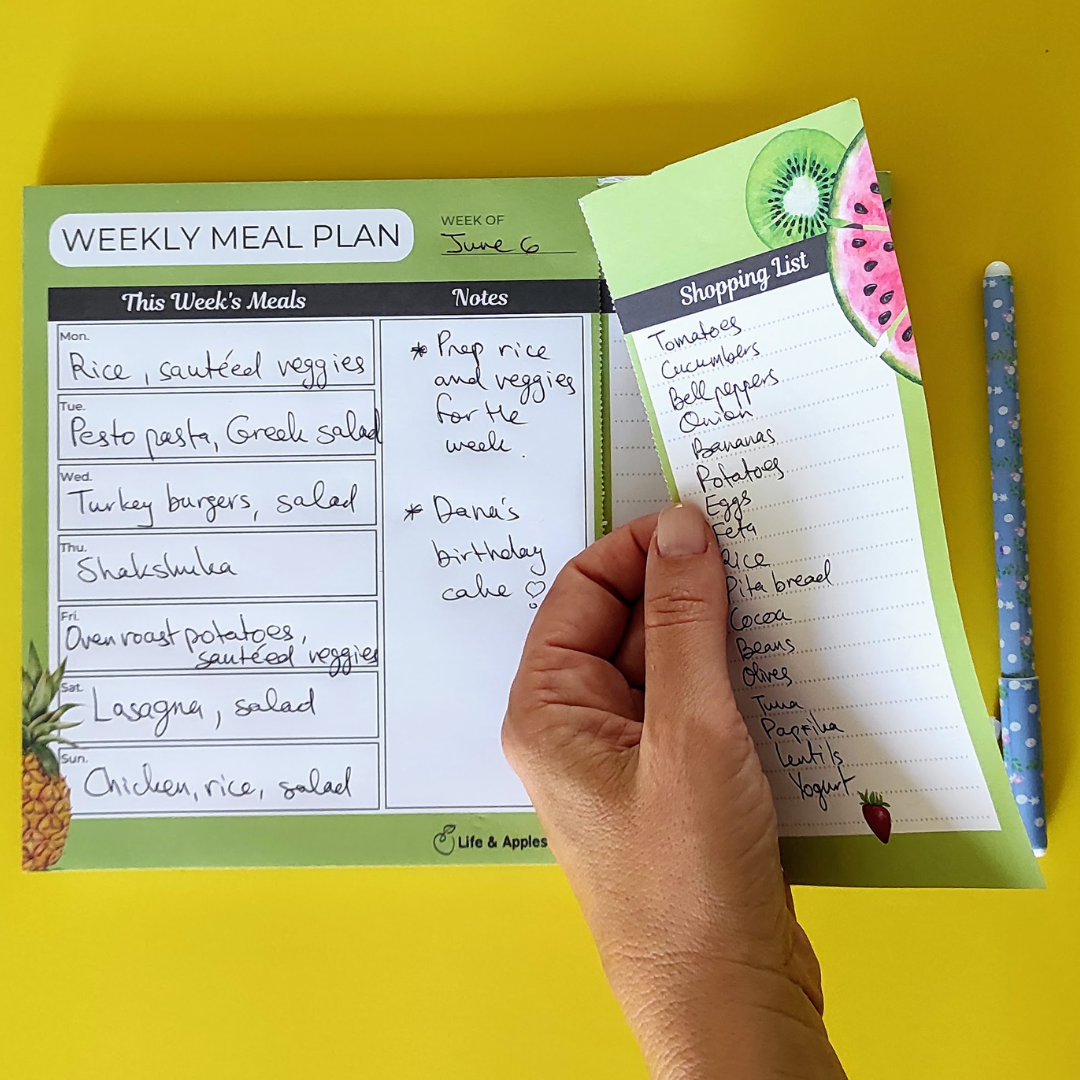 WEEKLY MEAL PLAN
WEEK OF
June 6
This Week's Meals
Mon.
Rice, sautéed veggies
Tue.
Pesto pasta, Greek salad
Wed.
Turkey burgers, salad
Thu.
Shakshuka
Fri.
Oven roast potatoes,
sautéed veggies
Sat.
Lasagna, salad
Sun.
Chicken, rice, salad
Notes
* Prep rice
and veggies
for the
week.
* Dana's
birthday
cake ♡
Life & Apples
Shopping List
Tomatoes
Cucumbers
Bell peppers
Onion
Bananas
Potatoes
Eggs
Feta
Rice
Pita bread
Cocoa
Beans
Olives
Tuna
Paprika
Lentils
Yogurt